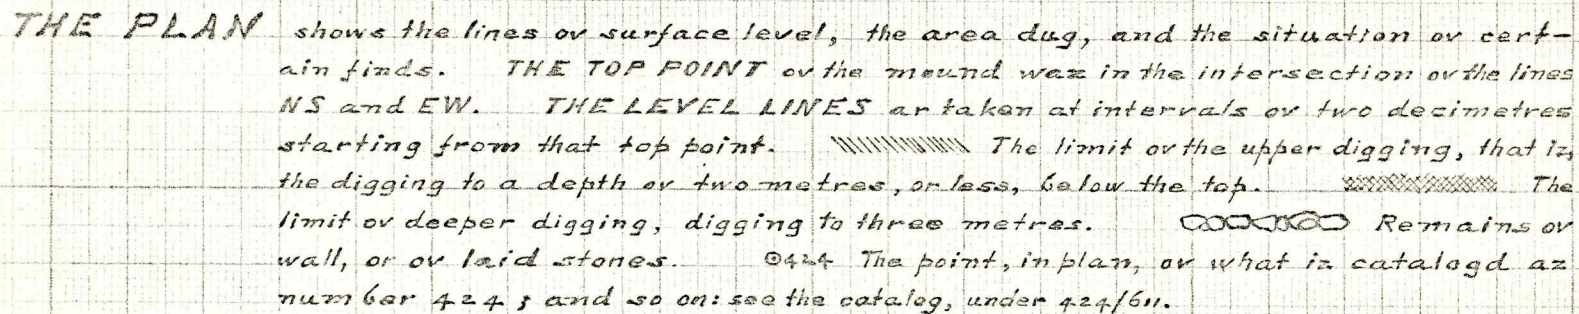 THE PLAN shows the lines ov surface level, the area dug, and the situation ov cert-
ain finds. THE TOP POINT ov the mound waz in the intersection ov the lines
NS and EW. THE LEVEL LINES ar taken at intervals ov two decimetres
starting from that top point. The limit ov the upper digging, that iz,
the digging to a depth ov two metres, or less, below the top. The
limit ov deeper digging, digging to three metres. Remains ov
wall, or ov laid stones. ⊙424 The point, in plan, ov what iz catalogd az
number 424; and so on: see the catalog, under 424/611.